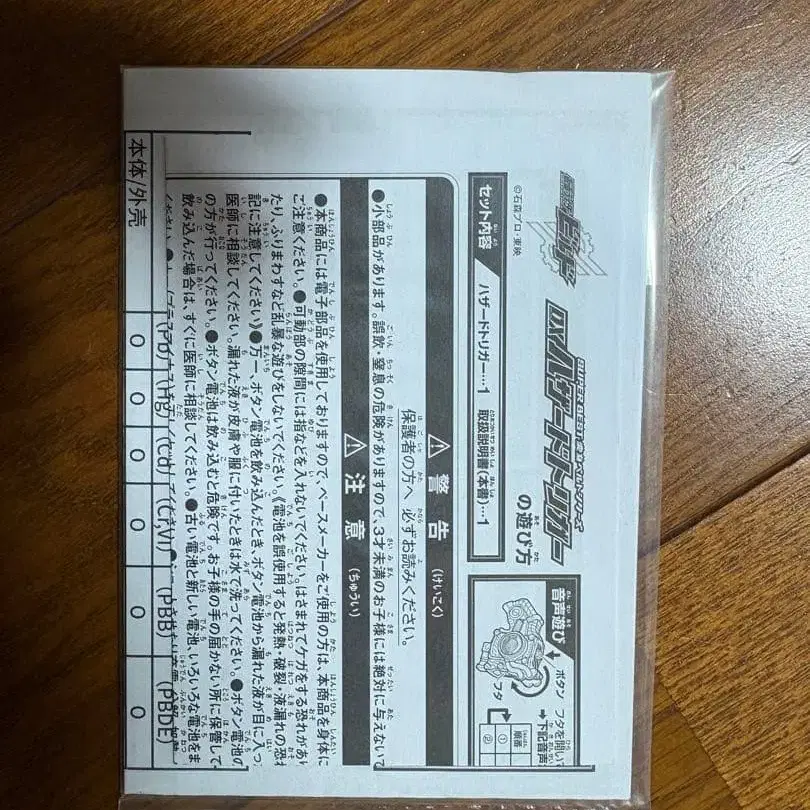 ©石森プロ・東映
仮面ライダービルド
SUPER BEST 変身ベルトシリーズ
DXハザードトリガー
の遊び方
セット内容
ハザードトリガー…1 取扱説明書(本書)…1
音声遊び
ボタン
フタ
フタを開い
➡下記音声
順番
①
②
⚠警告(けいこく)
保護者の方へ 必ずお読みください。
●小部品があります。誤飲・窒息の危険がありますので、3才未満のお子様には絶対に与えないで
⚠注意(ちゅうい)
●本商品には電子部品を使用しておりますので、ペースメーカーをご使用の方は、本商品を身体に
ご注意ください。●可動部の隙間には指などを入れないでください。はさまれてケガをする恐れがあり
たり、ふりまわすなど乱暴な遊びをしないでください。《電池を誤使用すると発熱・破裂・液漏れの恐れ
記に注意してください》●万一、ボタン電池を飲み込んだとき、ボタン電池から漏れた液が目に入っ
医師に相談してください。漏れた液が皮膚や服に付いたときは水で洗ってください。●ボタン電池の
の方が行ってください。●ボタン電池は飲み込むと危険です。お子様の手の届かない所に保管して
飲み込んだ場合は、すぐに医師に相談してください。●古い電池と新しい電池、いろいろな電池をま
(Pb) (Hg) (Cd) (Cr,VI) (PBB) (PBDE)
本体/外壳 O O O O O O